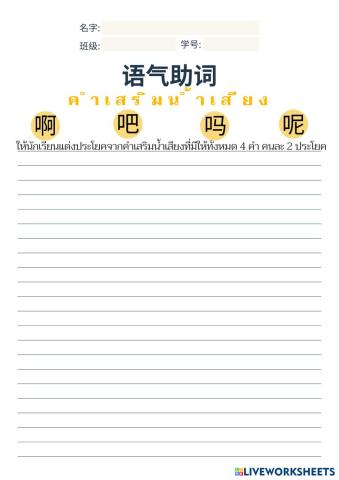 名字:
班级: 学号:
语气助词
คำเสริมน้ำเสียง
啊 吧 吗 呢
ให้นักเรียนแต่งประโยคจากคำเสริมน้ำเสียงที่มีให้ทั้งหมด 4 คำ คนละ 2 ประโยค
LIVEWORKSHEETS